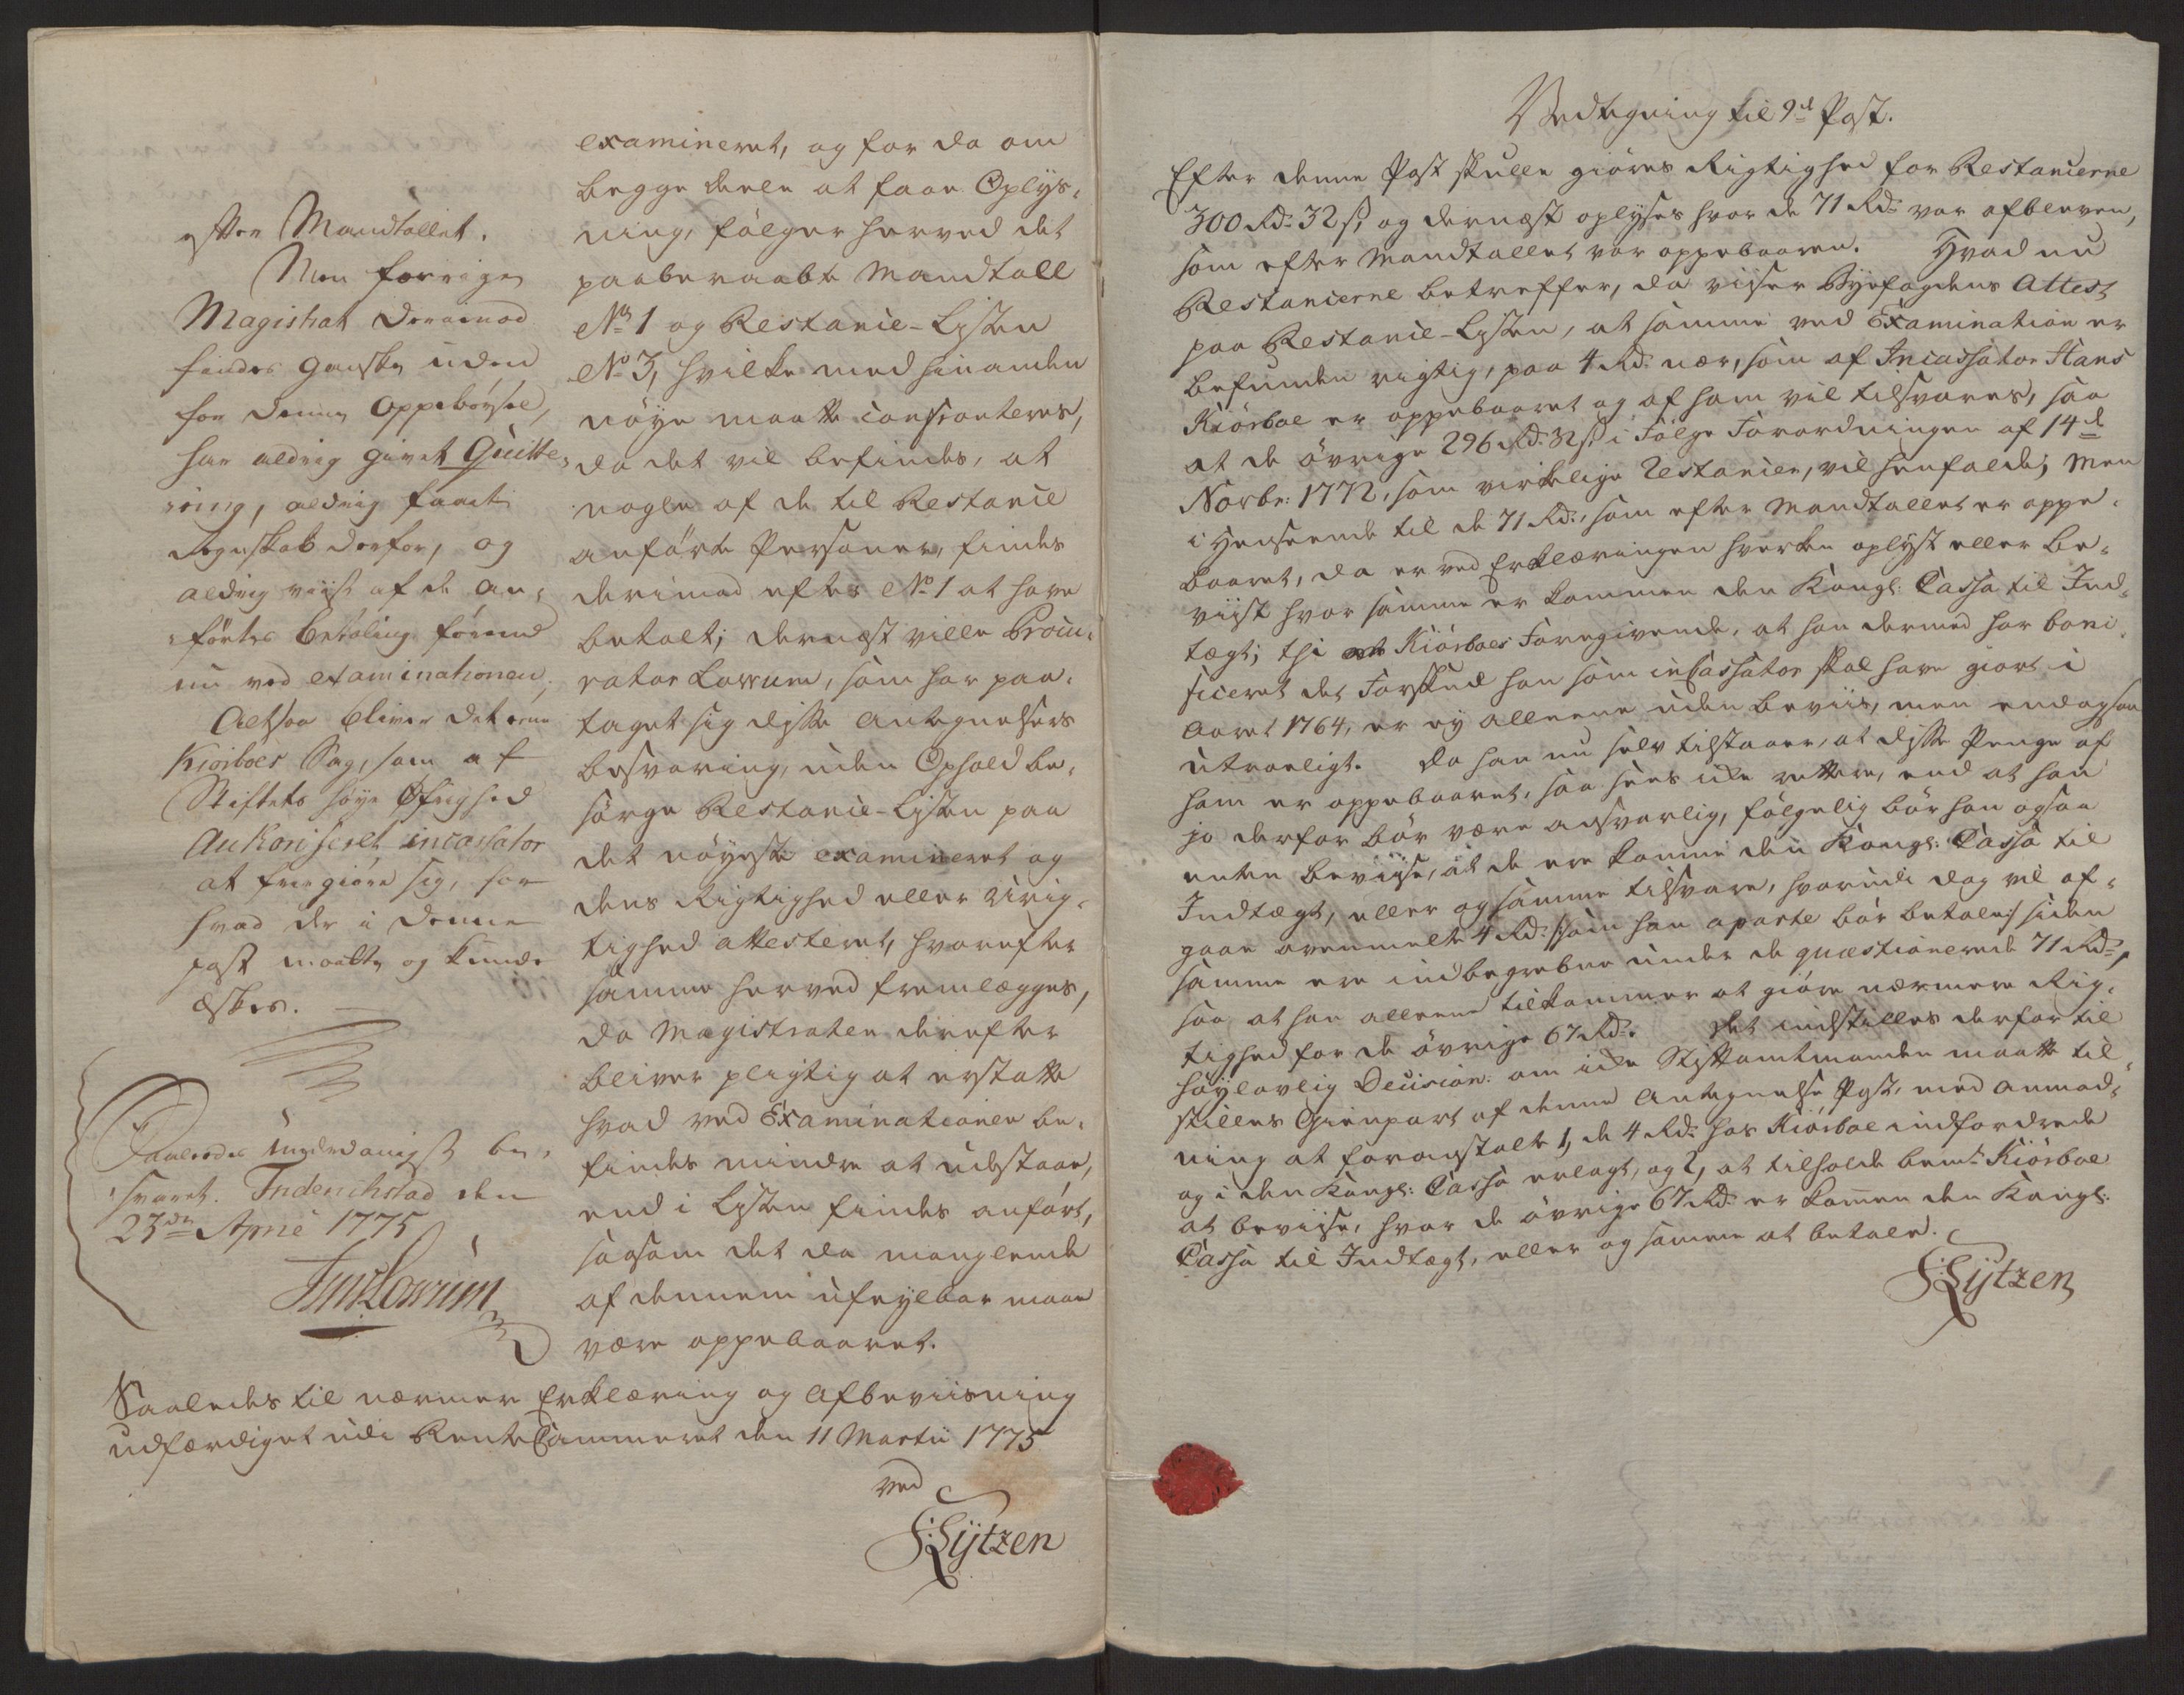 efter Mandtallet.
Men forrige
Magistrat deraimod
findes ganske uden
for denne Oppebørsel,
har aldrig givet Quitte-
ring, aldrig fært
Regnskab derfor, og
aldrig viist af de an-
førte Betaling førend
nu ved examinationen,
Altsaa bliver det
Kiørboes Sag, som af
Stiftets høye Øfrighed
Autoriseret incassator
at friegiøre sig, for
hvad der i denne
post maatte og kunde
æskes.
Saaledes underdanigst be-
svaret. Friderichstad den
23de April 1775
Lowum
examineret, og for da om
begge deele at faae Oplys-
ning, følger herved det
paaberaabte Mandtall
No 1 og Restanie-Listen
No 3, hvilke med hinanden
nøye maatte confronteres,
da det vil befindes, at
nogle af de til Restance
anførte Personer, findes
derimod efter No 1 at have
betalt; dernæst ville Procu-
rator Lowum, som har paa-
taget sig disse Antegnelsers
besvaring, uden Ophold be-
sørge Restance-Listen paa
det nøyeste examineret og
dens Rigtighed eller Urig-
tighed attesteret, hvorefter
samme herved fremlægges,
da Magistraten derefter
bliver pligtig at erstatte
hvad ved Examinationen be-
findes mindre at udestaae,
end i Listen findes anført,
saasom det da manglende
af dennem ufeylbar maae
være oppebaaret.
Saaledes til nærmere Erklæring og Afbeviisning
udfærdiget udi RenteCammeret den 11 Martii 1775
ved
S: Lÿtzen
Vedtegning til 9de Post.
Efter denne Post skulle giøres Rigtighed for Restancierne
300 Rd. 32 s, og dernæst oplyses hvor de 71 Rd. var afbleven,
som efter Mandtallet var oppebaaren. Hvad nu
Restancierne betreffer, da viiser Byefogdens Attest
paa Restancie-Listen, at samme ved Examination er
befunden rigtig, paa 4 Rd. nær, som af Incassator Hans
Kiørboe er oppebaaret og af ham vil tilsvares, saa
at de øvrige 296 Rd. 32 s i Følge Forordningen af 14de
Novbr: 1772, som virkelige Restancier, vil henfalde; Men
i Henseende til de 71 Rd., som efter Mandtallet er oppe-
baaret, da er ved Erklæringen hverken oplyst eller be-
viist hvor samme er kommen den Kongl: Cassa til Ind-
tægt; thi Kiørboes Foregivende, at han dermed har boni-
ficeret det Forskud han som incassator skal have giort i
Aaret 1764, er ey alleene uden beviis, men endogsaa
utroeligt. Da han nu selv tilstaaer, at disse Penge af
ham er oppebaaret, saa sees ikke rettere, end at han
jo derfor bør være ansvarlig, følgelig bør han ogsaa
enten beviise, at de ere komne den Kongl: Cassa til
Indtægt, eller og samme tilsvare, hvorudi dog vil af-
gaae ovenmelte 4 Rd. som han aparte bør betale, siden
samme ere indbegrebne under de quæstionerede 71 Rd.,
saa at han alleene tilkommer at giøre nærmere Rig-
tighed for de øvrige 67 Rd. Det indstilles derfor til
høylovlig Decision: om ikke Stiftamtmanden maatte til-
stilles Gienpart af denne Antegnelse Post, med anmod-
ning at foranstalte 1, de 4 Rd. hos Kiørboe indfordrede
og i den Kongl: Cassa erlagt, og 2, at tilholde bemte Kiørboe
at beviise, hvor de øvrige 67 Rd. er kommen den Kongl:
Cassa til Indtægt, eller og samme at betale.
S: Lÿtzen